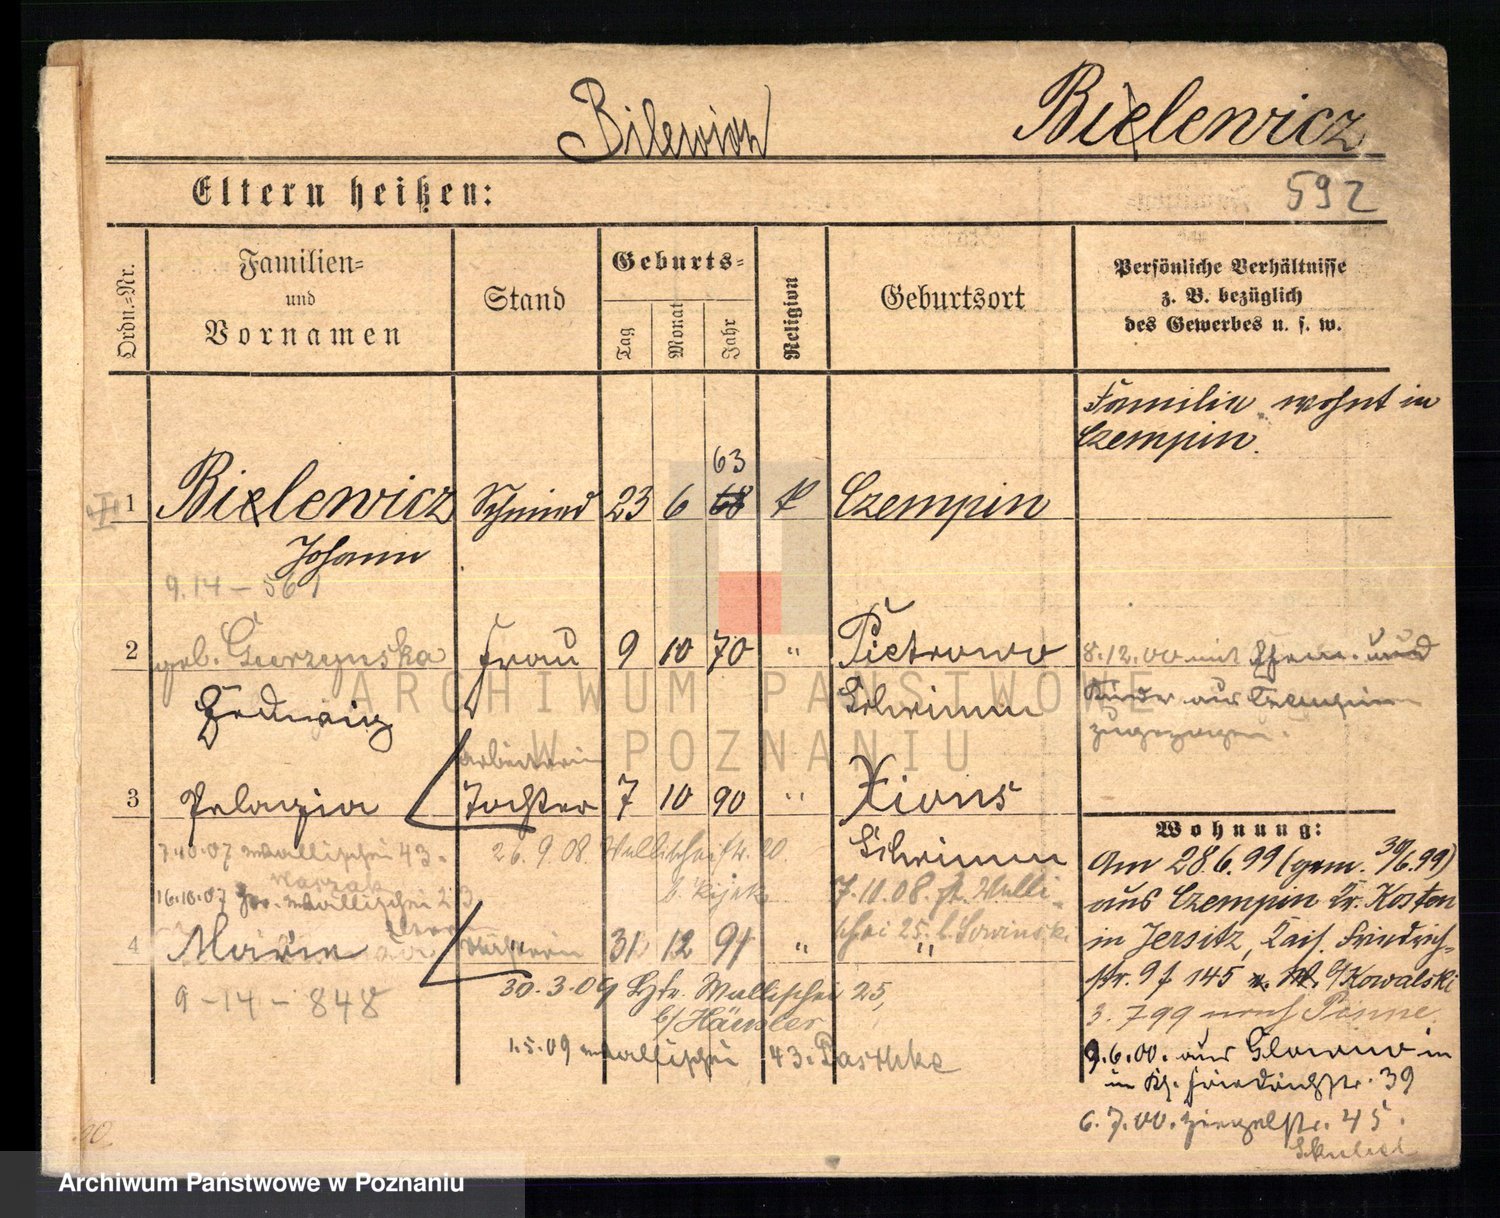 Bilewicz
Bielewicz
Eltern heißen:
592
Ordn.-Nr.
Familien-
und
Vornamen
Stand
Geburts-
Tag
Monat
Jahr
Religion
Geburtsort
Persönliche Verhältnisse
z. B. bezüglich
des Gewerbes u. s. w.
Familie wohnt in
Czempin.
63
1 Bielewicz Schmied 23 6 68 k Czempin
Johann
9.14 - 561
2 geb. Frau 9 10 70 " Pietrowo 8.12.00 mit und
Hedwig Schrimm Kinder aus Czempin
zugezogen.
Arbeiterin
3 Pelagia Tochter 7 10 90 " Xions
Schrimm
7.10.07 Wallischei 43. 26.9.08. Wallischeistr. 20.
16.10.07 Wallischei 23
7.10.08. Walli-
schei 25
4 Marie " 31 12 91 " "
9-14-848
30.3.09 Wallischei 25,
b/Häusler
1.5.09 Wallischei 43. Paschke
Wohnung:
Am 28.6.99 (gem. 30/6.99)
aus Czempin Kr. Kosten
in Jersitz, Kais. Friedrich-
str. 9 f 145 b/Kowalski
3. 7 99 nach Pinne
9.6.00. aus Glowno in
Friedrichstr. 39
6.7.00. Ziegelstr. 45.
ARCHIWUM PAŃSTWOWE
W POZNANIU
Archiwum Państwowe w Poznaniu